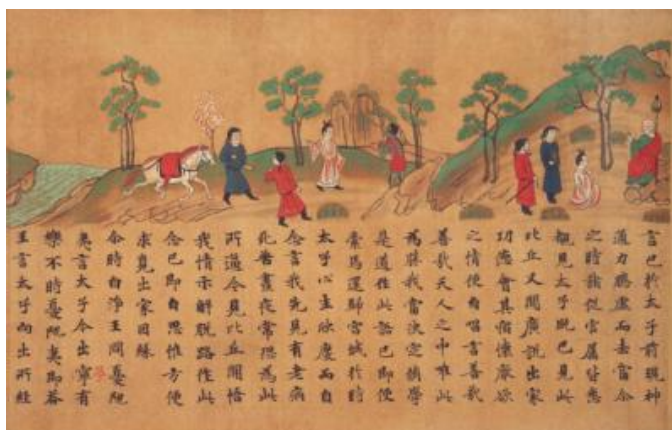 言已於太子前現神
通力騰虚而去當今
之時諸從官屬皆悉
覩見太子既已見此
比丘又聞廣説出家
功德會其宿懷厭欲
之情便自唱言善哉
善哉天人之中唯此
為勝我當決定脩學
是道作此語已即便
索馬還歸宮城於時
太子心生欣慶而自
念言我先見有老病
死苦晝夜常恐為此
所逼今見比丘開悟
我情示解脱路作此
念已即自思惟方便
求覓出家因緣
尒時白淨王問憂陁
夷言太子今出寧有
樂不時憂陁夷即荅
王言太子向出所經